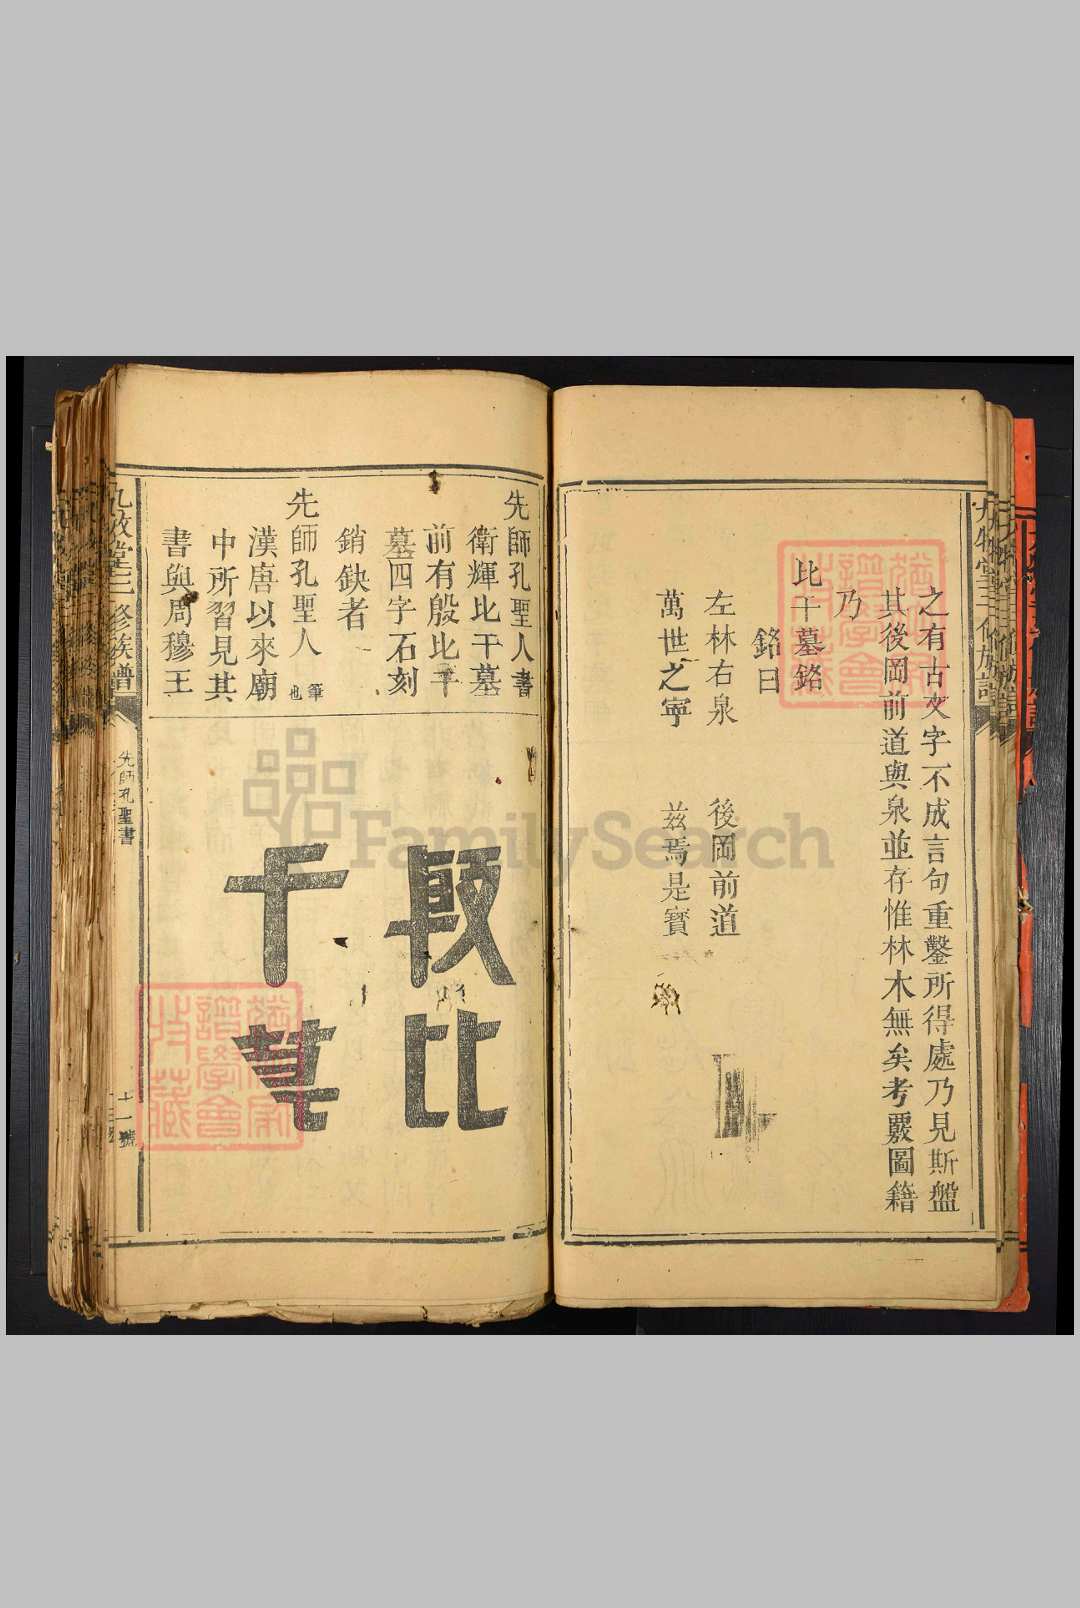 之有古文字不成言句重鑿所得處乃見斯盤
其後岡前道與泉並存惟林木無矣考覈圖籍
乃
比干墓銘
銘曰
左林右泉 後岡前道
萬世之寧 茲焉是寶
先師孔聖人書
衛輝比干墓
前有殷比干
墓四字石刻
銷缺者
先師孔聖人筆也
漢唐以來廟
中所習見其
書與周穆王
殷比
干墓
三修族譜
先師孔聖書
十一號
FamilySearch